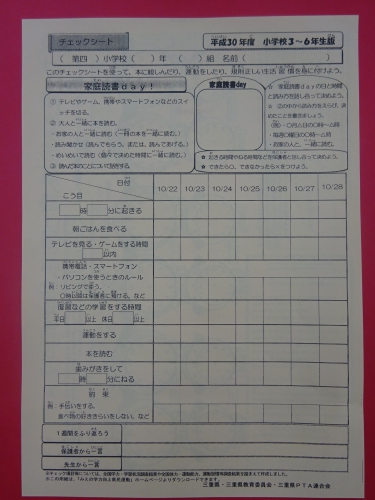 チェックシート
平成30年度 小学校3～6年生版
( 第四 )小学校( )年 ( )組 名前( )
このチェックシートを使って、本に親しんだり、運動をしたり、規則正しい生活習慣を身に付けよう。
家庭読書day!
① テレビやゲーム、携帯やスマートフォンなどのスイッチを切る。
② 大人と一緒に本を読む。
・お家の人と一緒に読む（一冊の本を一緒に読む。）
・読み聞かせ（読んでもらう。または、読んであげる。）
・めいめいで読む（個々で決めた時間に一緒に読む。）
③ 読んだ本のことについて話をする。
家庭読書day
☆ 家庭読書dayの日と時間と読み方を話し合って決めよう。
☆ ②の中から読み方をえらび、決めたことを書きましょう。
・お家の人と、一緒に読む。
☆ 起きる時間やねる時間などを保護者と話し合って決めよう。
☆ できたら○、できなかったら×をつけよう。
日付
こう目
10/22 10/23 10/24 10/25 10/26 10/27 10/28
時 分に起きる
朝ごはんを食べる
テレビを見る・ゲームをする時間
以内
携帯電話・スマートフォン
・パソコンを使うときのルール
例：リビングで使う。
○時以降は保護者に預ける。など
復習などの学習をする時間
平日 以上 休日 以上
運動をする
本を読む
歯みがきをして
時 分にねる
約束
例：手伝いをする。
食べ物の好ききらいをしない。など
1週間をふり返ろう
保護者から一言
先生から一言
※この用紙は、「みえの学力向上県民運動」ホームページよりダウンロードできます。
三重県・三重県教育委員会・三重県PTA連合会